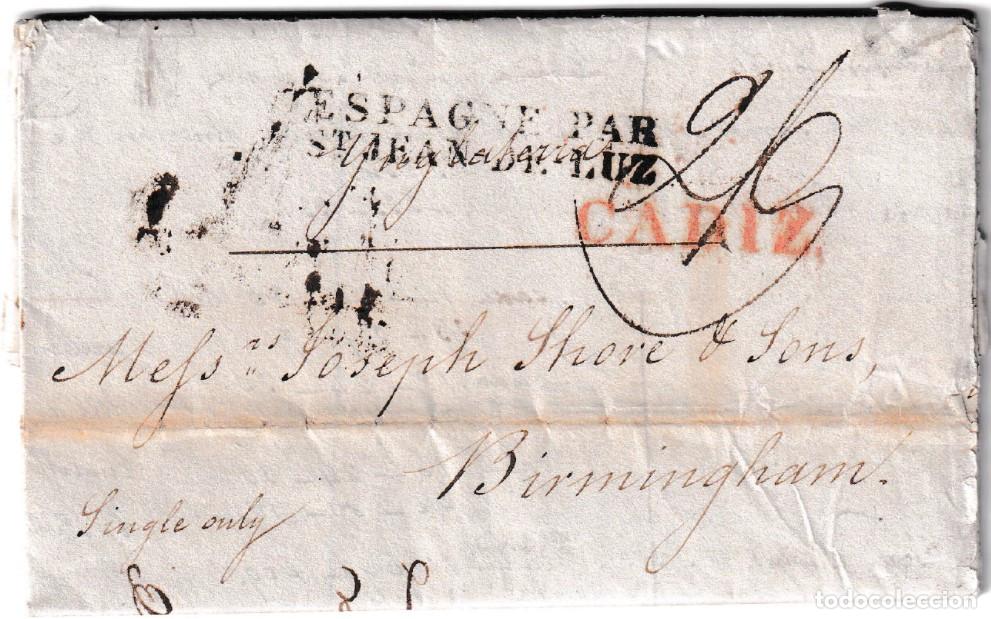 ESPAGNE PAR
Sᵀ JEAN-DE-LUZ
Ynglaterra
2/6
CADIZ.
Meſsʳˢ Joseph Shore & Sons,
Birmingham.
Single only
todocoleccion